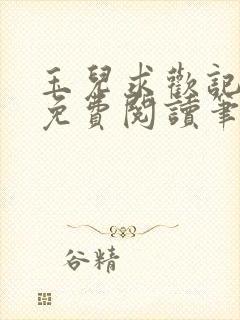 玉兒求歡記
免費閱讀筆
谷精